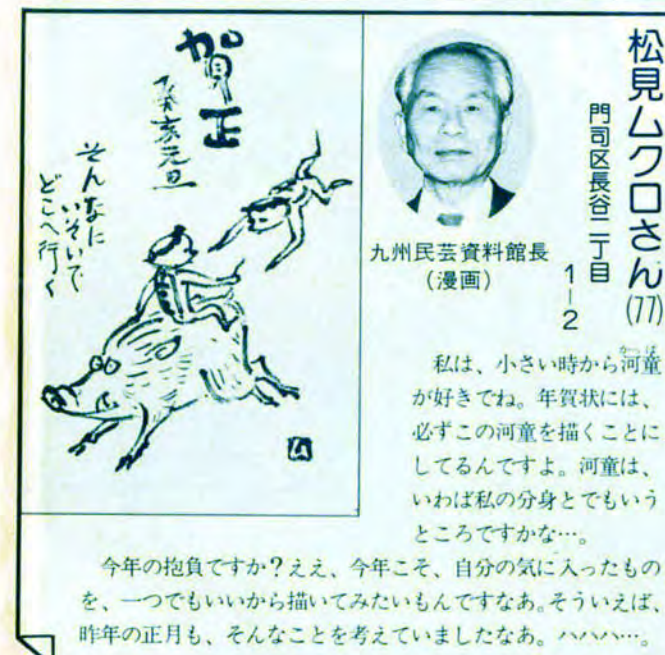 松見ムクロさん(77)
門司区長谷二丁目
1-2
九州民芸資料館長
(漫画)
賀正
癸亥元旦
そんなに
いそいで
どこへ行く
ム
かっぱ
私は、小さい時から河童
が好きでね。年賀状には、
必ずこの河童を描くことに
してるんですよ。河童は、
いわば私の分身とでもいう
ところですかな…。
今年の抱負ですか?ええ、今年こそ、自分の気に入ったもの
を、一つでもいいから描いてみたいもんですなあ。そういえば、
昨年の正月も、そんなことを考えていましたなあ。ハハハ…。